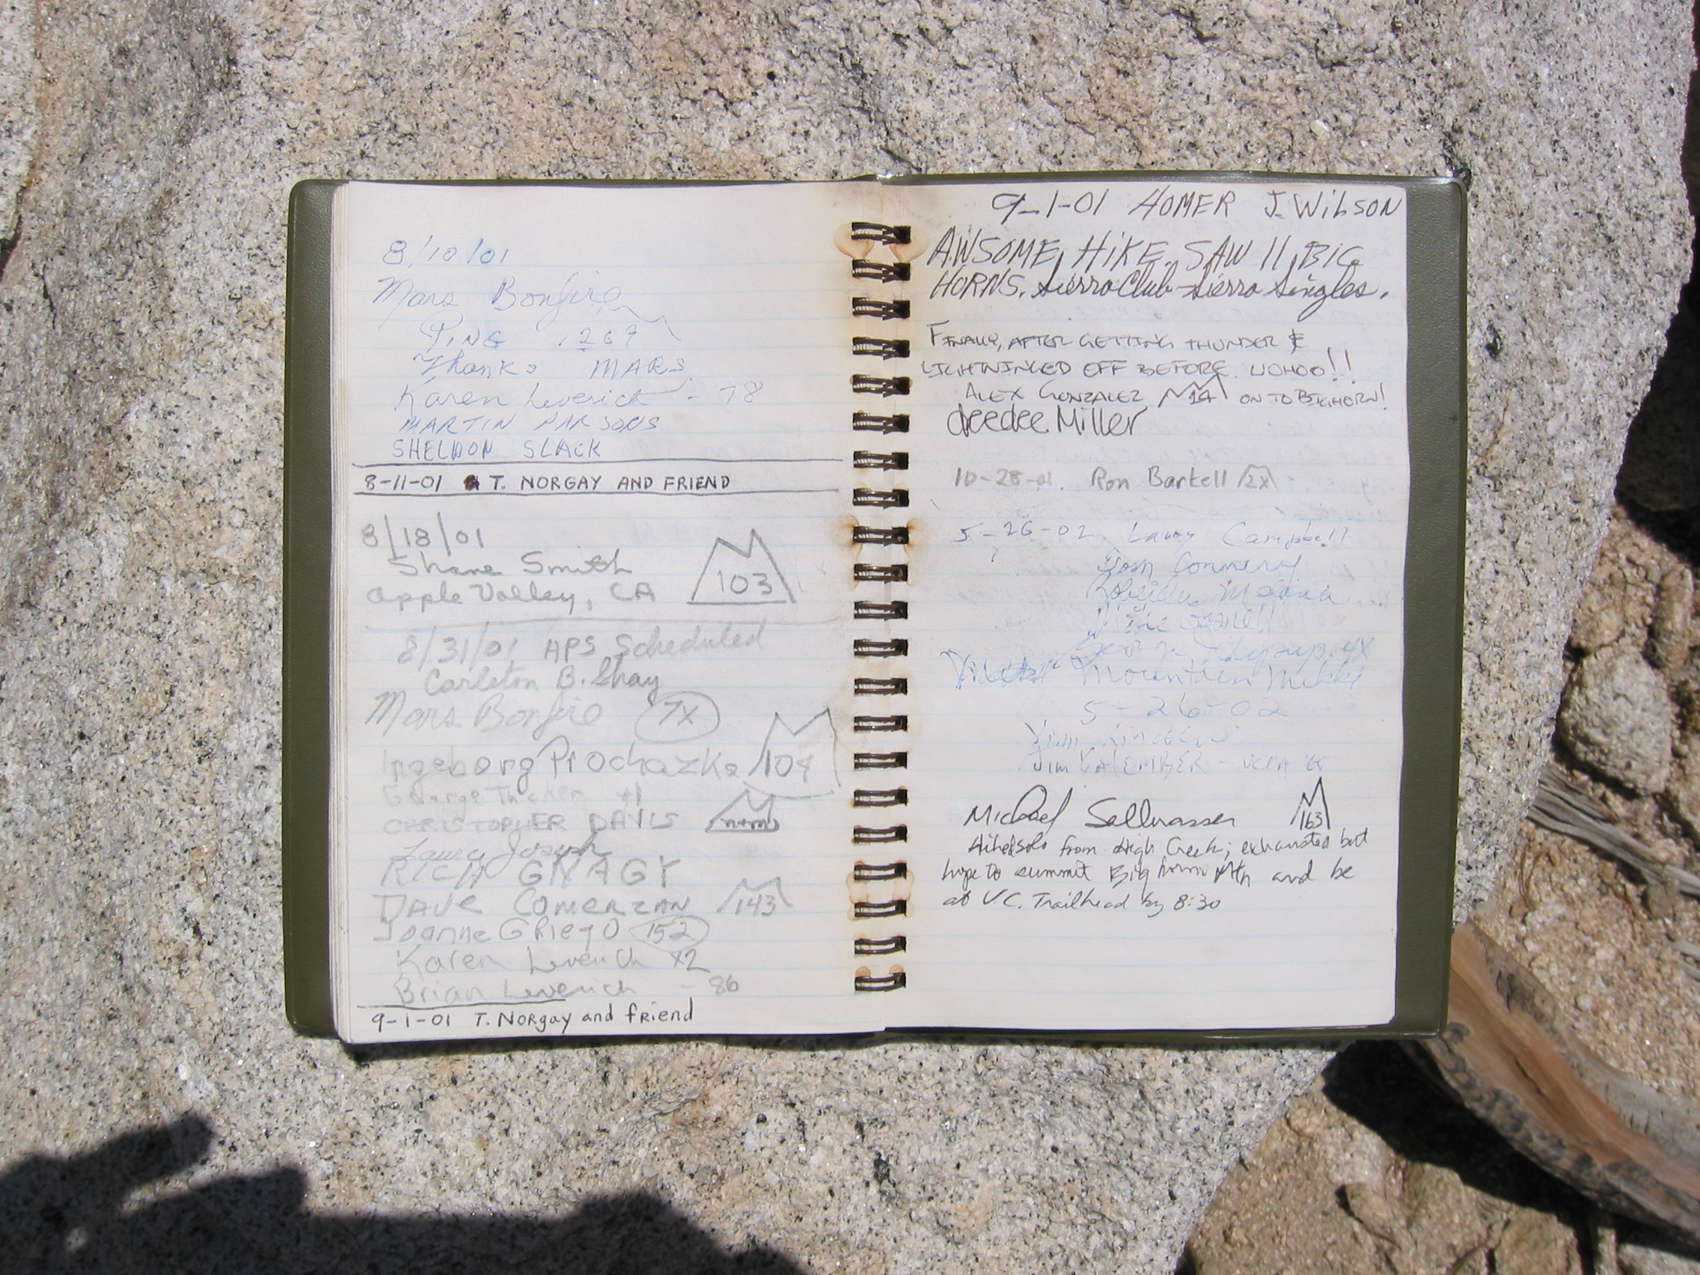 8/10/01
Mars Bonfire
PING 269
Thanks MARS
Karen Leverich - 78
MARTIN PARSONS
SHELDON SLACK
8-11-01 T. NORGAY AND FRIEND
8/18/01
Shane Smith 103
Apple Valley, CA
8/31/01 HPS Scheduled
Carleton B. Shay
Mars Bonfire 7X
Ingeborg Prochazka 104
George Tucker +1
CHRISTOPHER DAVIS
Laura Joseph
RICH GNAGY
DAVE COMERZAN 143
Joanne Griego 152
Karen Leverich x2
Brian Leverich - 86
9-1-01 T. Norgay and friend
9-1-01 HOMER J. WILSON
AWSOME HIKE. SAW 11 BIG
HORNS. Sierra Club - Sierra Singles.
FINALLY, AFTER GETTING THUNDER &
LIGHTNINGED OFF BEFORE. WOHOO!!
ALEX GONZALEZ 14 ON TO BIGHORN!
deedee Miller
10-28-01. Ron Bartell 2x
5-26-02 Campbell
Mountain
5-26-02
Jim
Michael Sellnasser 163
Hiked solo from High Creek; exhausted but
hope to summit Big horn Mtn and be
at V.C. Trailhead by 8:30